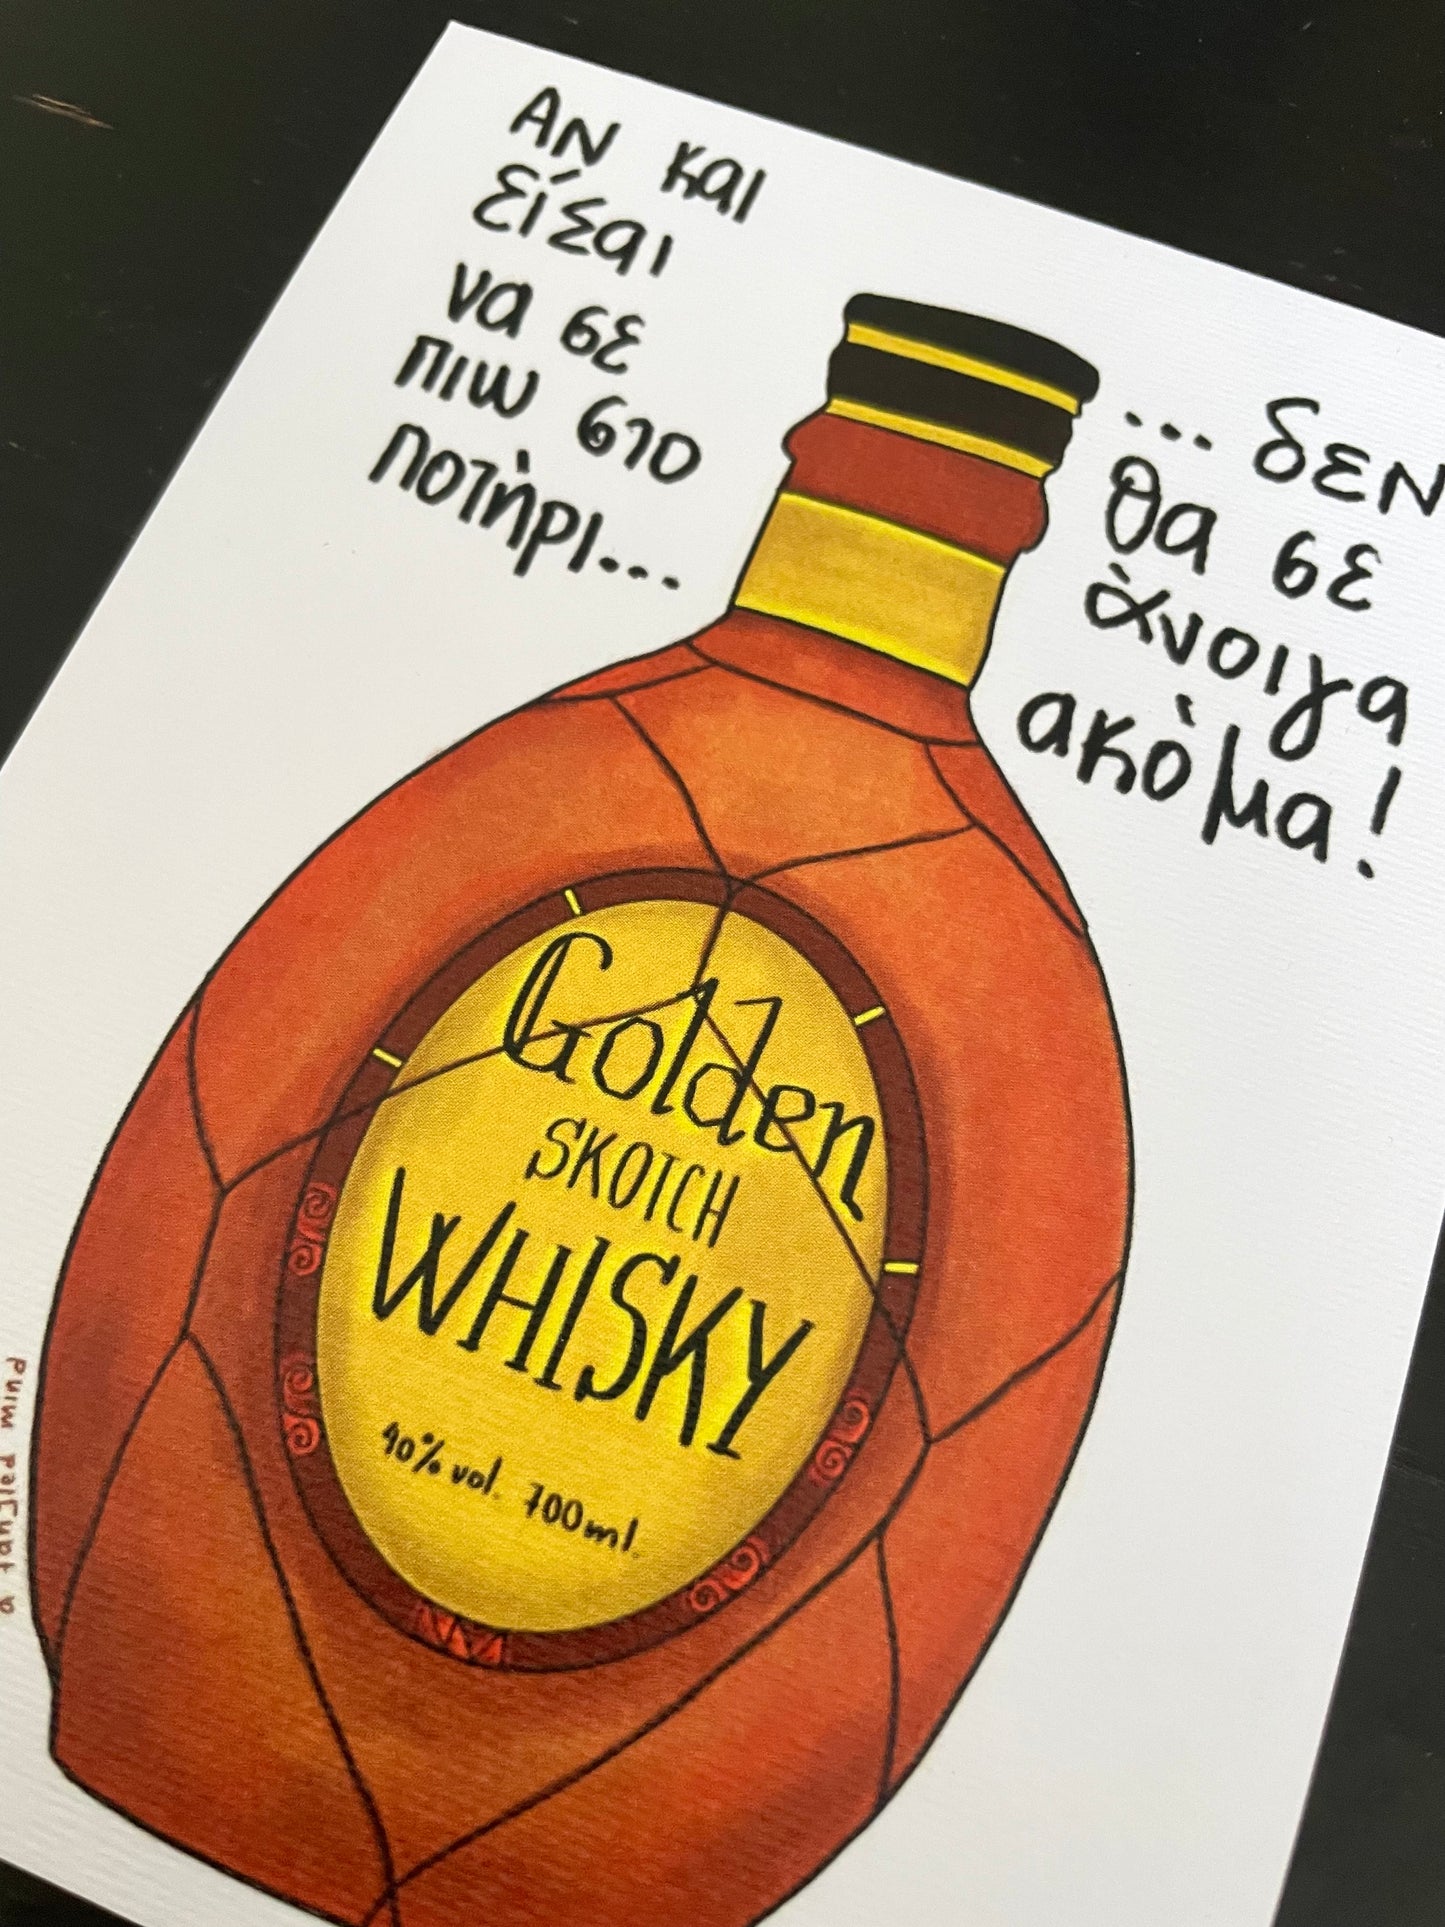 ΑΝ και
είσαι
να σε
πιω στο
ποτήρι...
...δεν
θα σε
άνοιγα
ακόμα!
Golden
SKOTCH
WHISKY
40% vol. 700ml.
a tangled mind